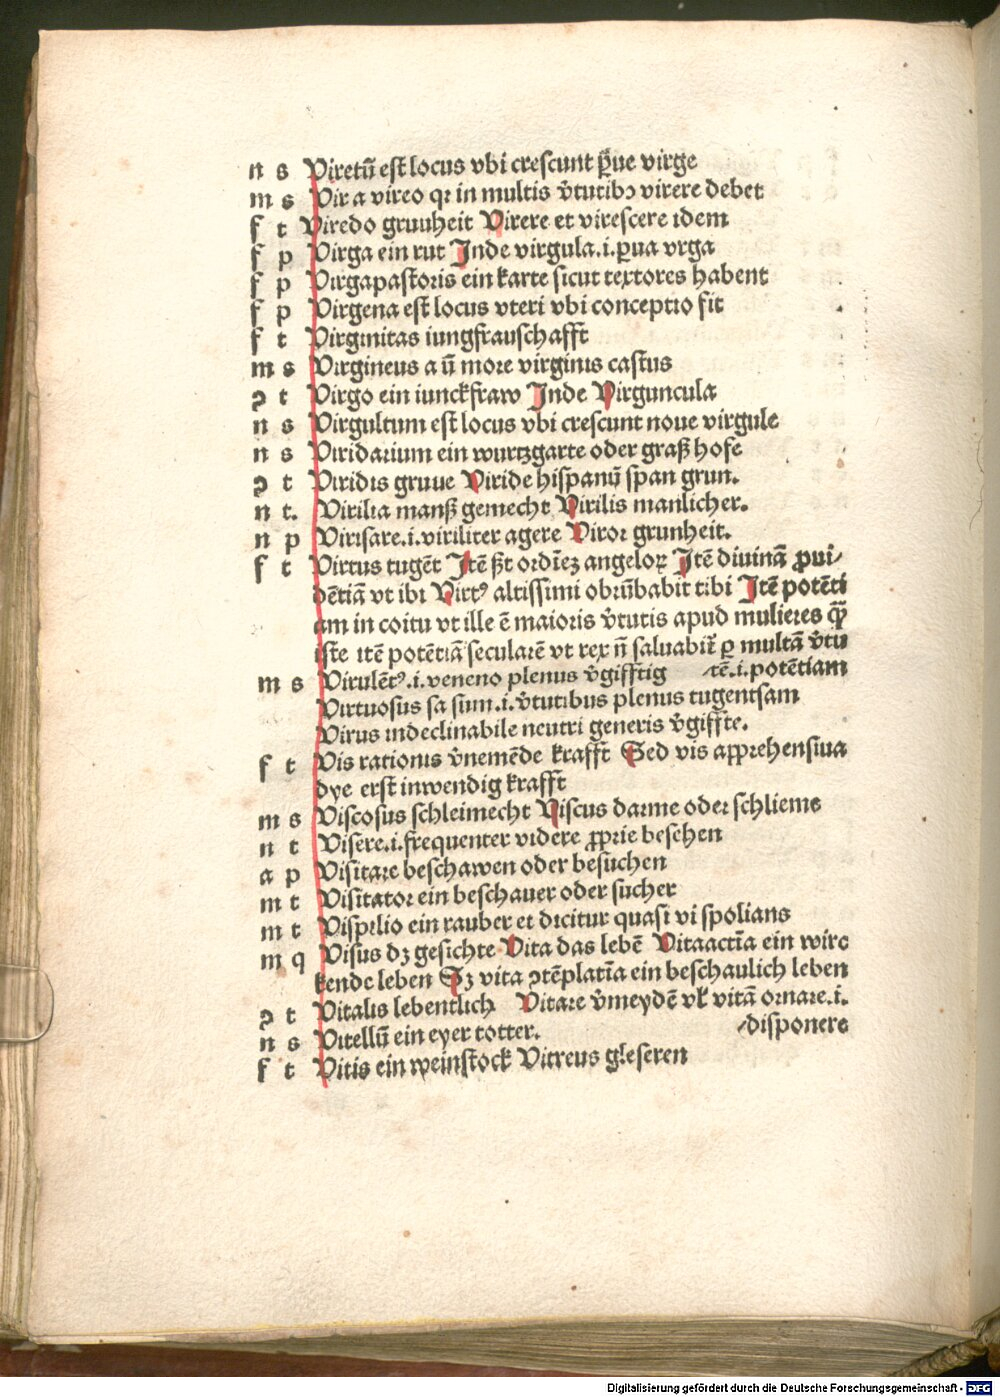 n s Viretū est locus vbi crescunt p̄ue virge
m s Vir a vireo qꝛ in multis v̄tutibꝰ virere debet
f t Viredo gruuheit Virere et virescere idem
f p Virga ein rut Inde virgula.i.ꝑua vrga
f p Virgapastoris ein karte sicut textores habent
f p Virgena est locus vteri vbi conceptio fit
f t Virginitas iungfrauschafft
m s Virgineus a ū more virginis castus
ꝯ t Virgo ein iunckfraw Inde Virguncula
n s Virgultum est locus vbi crescunt noue virgule
n s Viridarium ein wurtzgarte oder graß hofe
ꝯ t Viridis gruue Viride hispanū span grun.
n t. Virilia manß gemecht Virilis manlicher.
n p Virisare.i.viriliter agere Viror grunheit.
f t Virtus tugēt Itē ßt ordīeꝫ angeloꝝ Itē diuinā ꝓui/
dētiā vt ibi Virtꝰ altissimi obrūbabit tibi Itē potēti
am in coitu vt ille ē maioris v̄tutis apud mulieres qꝫ̄
iste itē potētiā secularē vt rex nō saluabit̄ ꝑ multā v̄tu
m s Virulētꝰ.i.veneno plenus v̄gifftig /tē.i.potētiam
Virtuosus sa sum.i.v̄tutibus plenus tugentsam
Virus indeclinabile neutri generis v̄giffte.
f t Vis rationis v̄nemēde krafft Sed vis apprehensiua
dye erst inwendig krafft
m s Viscosus schleimecht Viscus darme oder schlieme
n t Visere.i.frequenter videre ꝓprie besehen
a p Visitare beschawen oder besuchen
m t Visitator ein beschauer oder sucher
m t Vispilio ein rauber et dicitur quasi vi spolians
m q Visus dꝫ gesichte Vita das lebē Vitaactīa ein wirc
kende leben Sꝫ vita ꝯtēplatīa ein beschaulich leben
ꝯ t Vitalis lebentlich Vitare v̄meydē vl̓ vitā ornare.i.
n s Vitellū ein eyer totter. /disponere
f t Vitis ein weinstock Vitreus gleseren
Digitalisierung gefördert durch die Deutsche Forschungsgemeinschaft - DFG